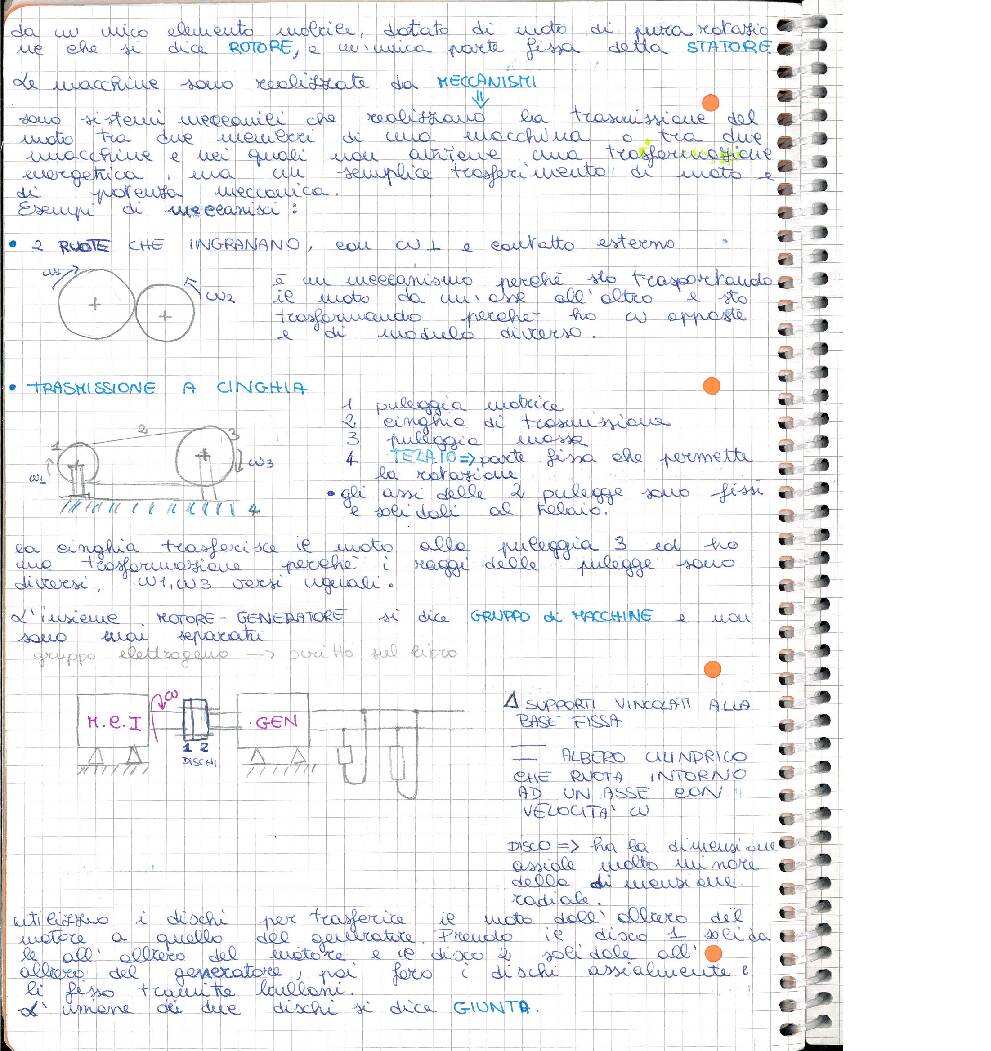 da un unico elemento motrice, dotato di moto di pura rotazio
ne che si dice ROTORE, e un'unica parte fissa detta STATORE
Le macchine sono realizzate da MECCANISMI
sono sistemi meccanici che realizzano la trasmissione del
moto tra due membri di una macchina o tra due
macchine e nei quali non avviene una trasformazione
energetica, ma un semplice trasferimento di moto e
di potenza meccanica.
Esempi di meccanisci:
• 2 RUOTE CHE INGRANANO, con ω ⊥ e contatto esterno
ω1
ω2
è un meccanismo perché sto trasportando
il moto da un'asse all'altro e sto
trasformando perché ho ω opposte
e di modulo diverso.
• TRASMISSIONE A CINGHIA
1 puleggia motrice
2 cinghia di trasmissione
3 puleggia mossa
4 TELAIO => parte fissa che permette
la rotazione
• gli assi delle 2 pulegge sono fissi
e solidali al telaio.
1 2 3
ω1 ω3
4
La cinghia trasferisce il moto alla puleggia 3 ed ho
una trasformazione perché i raggi delle pulegge sono
diversi, ω1, ω3 versi uguali.
L'insieme MOTORE-GENERATORE si dice GRUPPO di MACCHINE e non
sono mai separati
gruppo elettrogeno -> scritto sul libro
M.C.I ω GEN
1 2
DISCHI
Δ SUPPORTI VINCOLATI ALLA
BASE FISSA
— ALBERO CILINDRICO
CHE RUOTA INTORNO
AD UN ASSE CON
VELOCITA' ω
DISCO => ha la dimensione
assiale molto minore
della dimensione
radiale.
utilizzo i dischi per trasferire il moto dall'albero del
motore a quello del generatore. Prendo il disco 1 solida
le all'albero del motore e il disco 2 solidale all'
albero del generatore, poi foro i dischi assialmente e
li fisso tramite bulloni.
L'unione dei due dischi si dice GIUNTO.